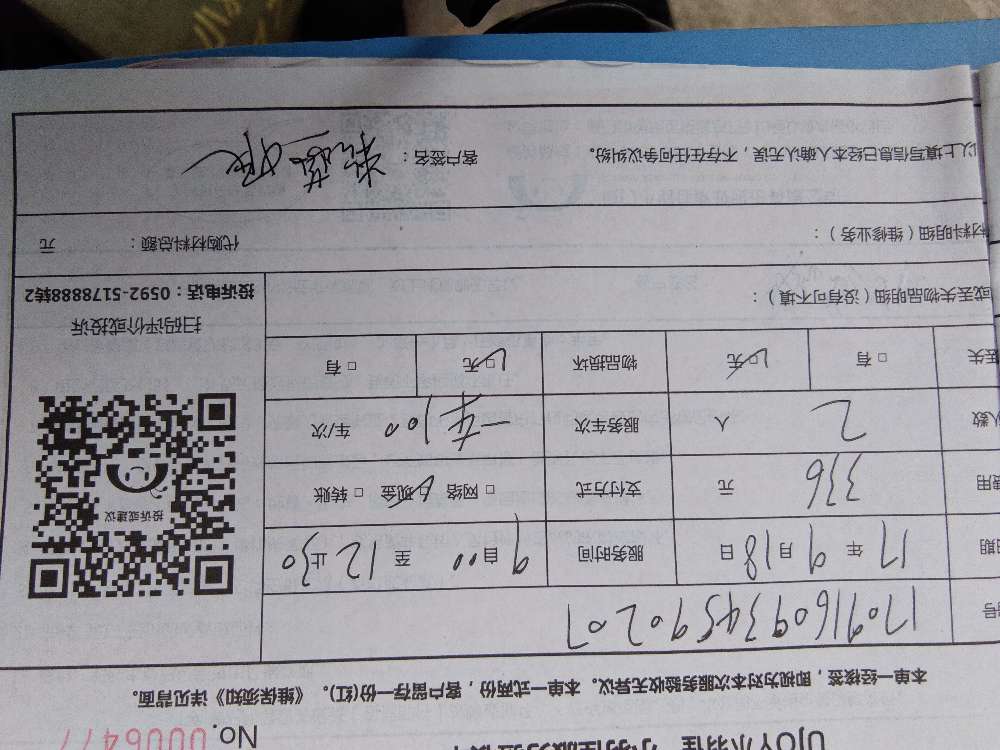 UJOY小羽佳
No. 0006477
本单一经接签，即视为对本次服务验收无异议。本单一式两份，客户留存一份(红)。《维保须知》详见背面。
号 1709160934590207
日期 17 年 9 月 18 日 服务时间 自 9 00 至 12 止 30
费用 336 元 支付方式 □ 网络 □ 现金 □ 转账
人数 2 人 服务车次 一车100 车/次
丢失 □ 有 □ 无 物品损坏 □ 无 □ 有
或丢失物品明细（没有可不填）：
投诉或建议
扫码评价或投诉
投诉电话：0592-5178888转2
材料明细（维修业务）： 代购材料总额： 元
以上填写信息已经本人确认无误，不存在任何争议纠纷。 客户签名：